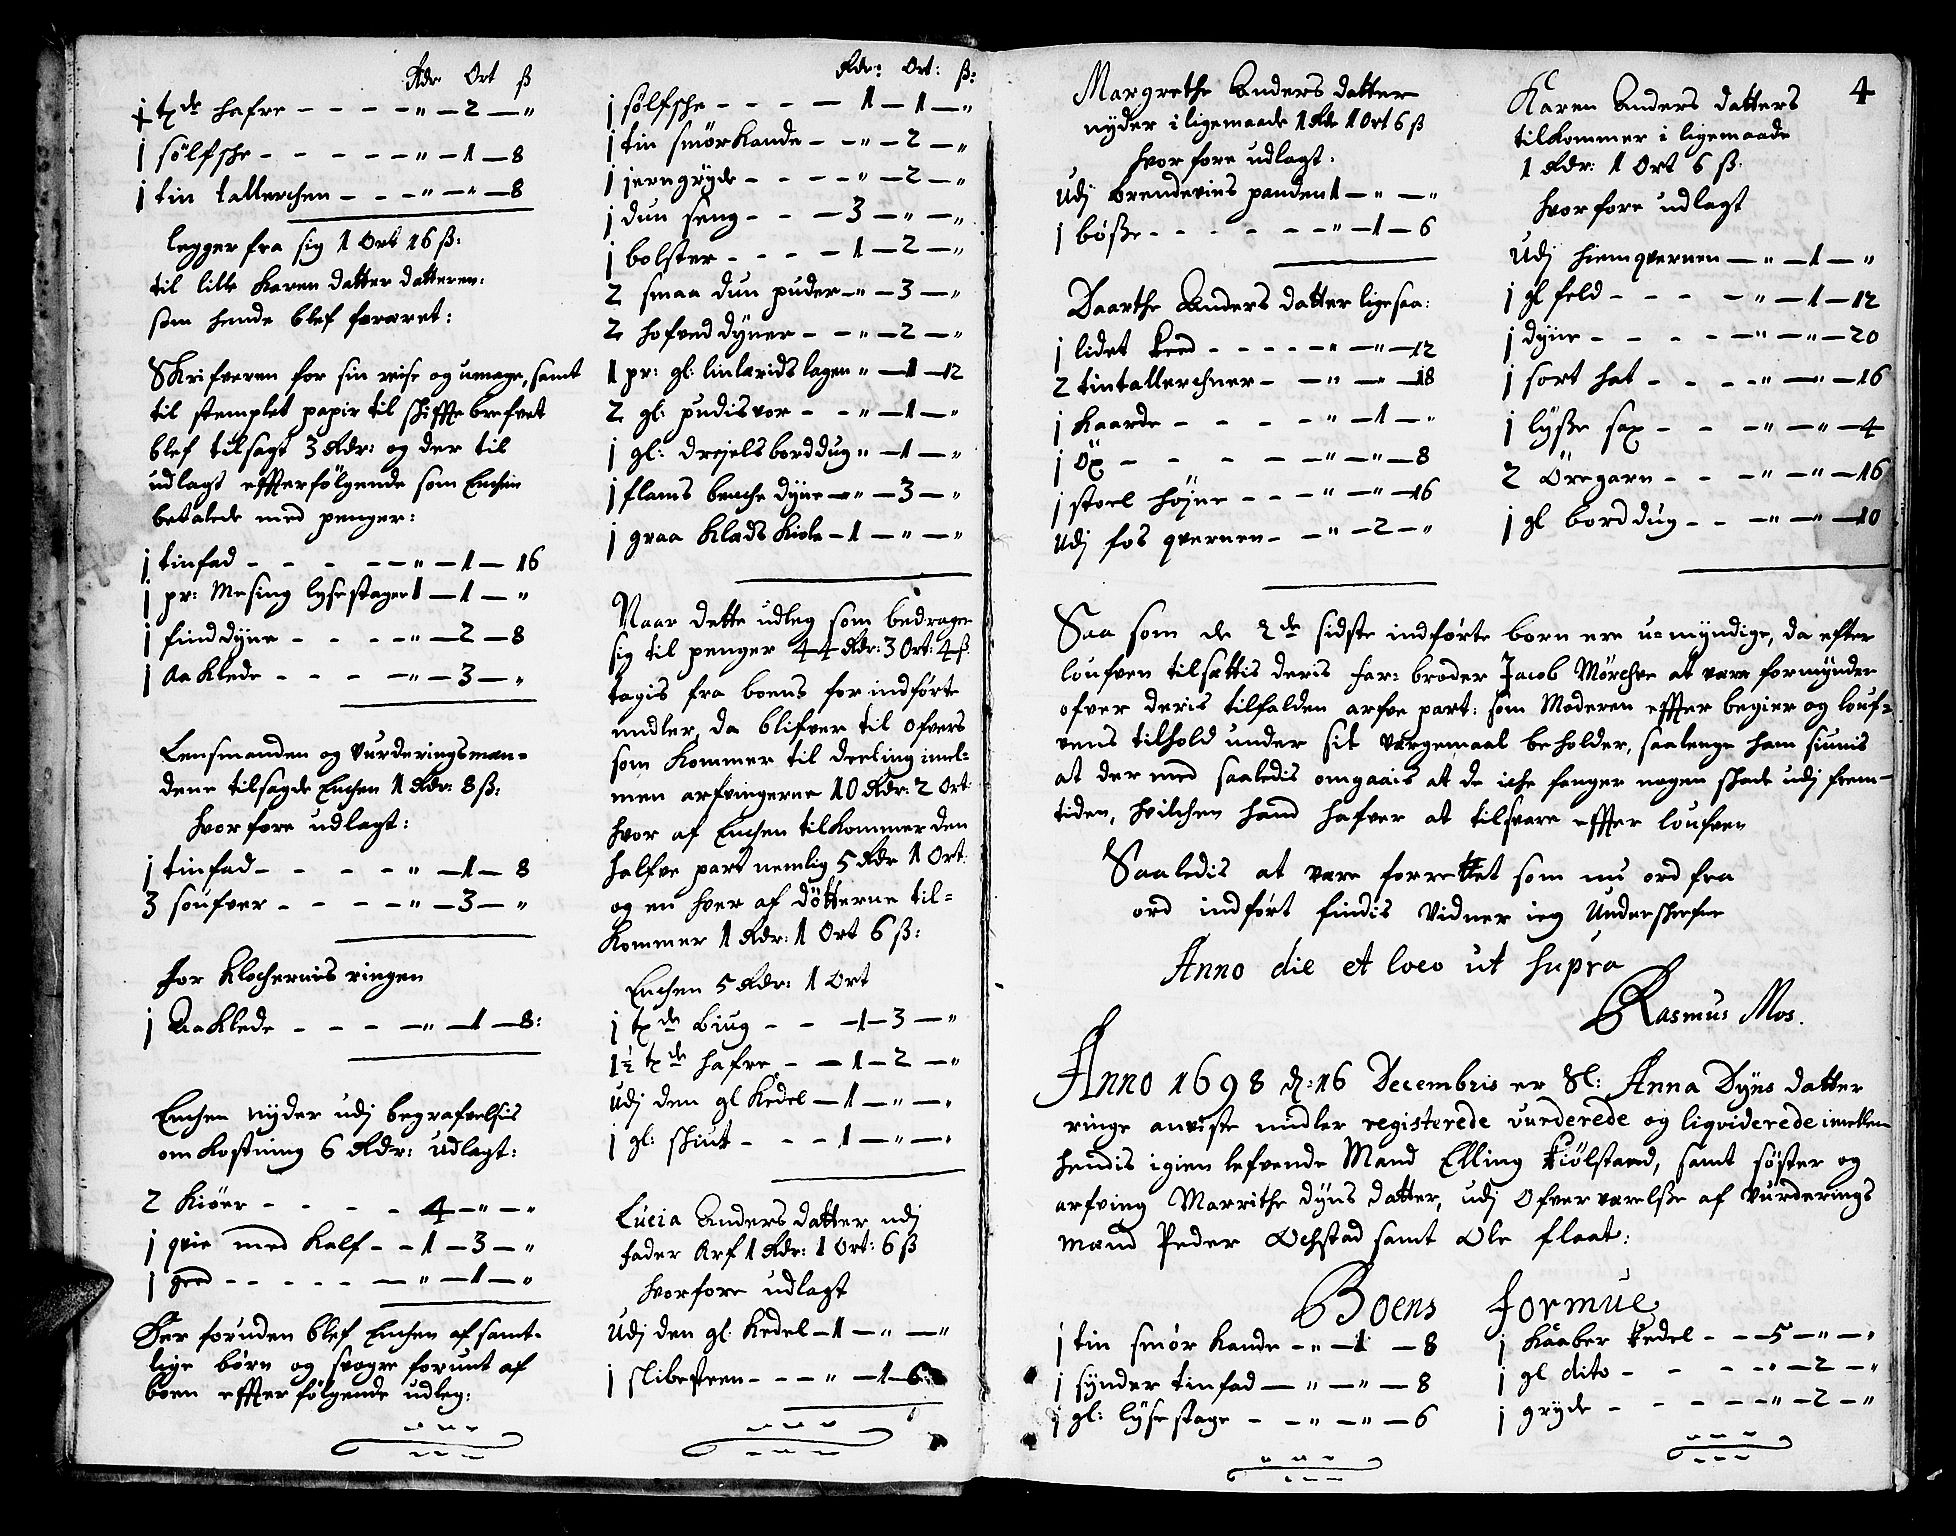 Rdr Ort ß
1 tde hafre - - - - " - 2 - "
1 sölfsche - - - - " - 1 - 8
1 tin tallerchen - - - " - " - 8
legger fra sig 1 Ort 16 ß:
til lille Karen datter datteren:
som hende blef foraret:
Skrifveren for sin reise og umage, samt
til stemplet papir til schiffte brefvet
blef tilsagt 3 Rdr: og der til
udlagt effterfölgende som Enchen
betalede med penger:
1 tinfad - - - - - " - 1 - 16
1 pr: Mesing lysestager 1 - 1 - "
1 finddyne - - - - " - 2 - 8
1 Aaklede - - - - " - 3 - "
Lensmanden og vurderingsmen=
dene tilsagde Enchen 1 Rdr: 8 ß:
hvorfore udlagt:
1 tinfad - - - - " - 1 - 8
3 soufver - - - - " - 3 - "
for Klochernis ringen
1 Aaklede - - - - " - 1 - 8:
Enchen nyder udj begrafvelsis
omkostning 6 Rdr: udlagt:
2 Kiöer - - - - 4 - " - "
1 qvie med Kalf - - 1 - 3 - "
1 geed - - - - - " - 1 - "
Der foruden blef Enchen af samt-
lige börn og svogre forunt af
boen effter fölgende udleg:
Rdr: Ort: ß:
1 sölfsche - - - - 1 - 1 - "
1 tin smörkande - - " - 2 - "
1 jerngryde - - - - " - 2 - "
1 dun seng - - - 3 - " - "
1 bolster - - - - 1 - 2 - "
2 smaa dun puder - " - 3 - "
2 hofved dyner - - " - 2 - "
1 pr: gl: linlærids lagen " - 1 - 12
2 gl: pudisvor - - " - 1 - "
1 gl: drejels borddug " - 1 - "
1 flams benche dyne - " - 3 - "
1 graa Klæds Kiole - 1 - " - "
Naar dette udleg som bedrager
sig til penger 44 Rdr: 3 Ort: 4 ß.
tagis fra boens for indförte
midler, da blifver til ofvers
som Kommer til deeling imel-
men arfvingerne 10 Rdr: 2 Ort:
hvor af Enchen tilkommer den
halfve part nemlig 5 Rdr 1 Ort:
og en hver af Dötterne til=
Kommer 1 Rdr: 1 Ort 6 ß:
Enchen 5 Rdr: 1 Ort
1 tde biug - - - 1 - 3 - "
1½ tde hafre - - 1 - 2 - "
udj den gl Kedel - 1 - " - "
1 gl: schiut - - - 1 - " - "
Lucia Anders datter udj
fader Arf 1 Rdr: 1 Ort: 6 ß
hvorfore udlagt
Udj den gl: Kedel - 1 - " - "
1 slibesteen - - - " - 1 - 6:
4
Margrethe Anders datter
nyder i ligemaade 1 Rdr 1 Ort 6 ß
hvor fore udlagt:
Udj brendeviins panden 1 - " - "
1 bösse - - - - - - " - 1 - 6
Daarthe Anders datter ligesaa:
1 lidet - - - - - " - " - 12
2 tintallerchner - - " - " - 18
1 Kaarde - - - - " - 1 - "
1 Öx - - - - - " - " - 8
1 stoel höyne - - - " - " - 16
Udj fos qvernen - - " - 2 - "
Karen Anders datters
tilkommer i ligemaade
1 Rdr: 1 Ort 6 ß:
hvorfore udlagt
Udj hiemqvernen - " - 1 - "
1 gl feld - - - - " - 1 - 12
1 dyne - - - - - " - " - 20
1 sort hat - - - - " - " - 16
1 lysse sax - - - " - " - 4
2 Öregarn - - - " - " - 16
1 gl borddug - - - " - " - 10
Saa som de 2de sidste indförte born ere u=myndige, da efter
loufven tilsættis deris far: broder Jacob Mörchve at være formynder
ofver deris tilfalden arfve part: som Moderen effter begier og louf=
vens tilhold under sit værgemaal beholder, saalenge ham siunis
at der med saaledis omgaais at de iche fanger nogen schade udj frem-
tiden, hvilchen hand hafver at tilsvare effter loufven
Saaledis at være forrettet som nu ord fra
ord indfört findis Vidner ieg Underschrefne
Anno die et loco ut supra
Rasmus Mos.
Anno 1698 d: 16 Decembris er Sl: Anna Dyns datter
ringe anviste midler registerede vurderede og liqviderede imellem
hendis igien lefvende Mand Elling Kiölstad, samt söster og
arfving Marrithe Dyns datter, udj ofver værelsse af Vurderings
mænd Peder Ochstad samt Ole flaat:
Boens Formue
1 tin smör kande - - " - 1 - 8
1 synder tinfad - " - " - 8
1 gl: lyse stage - - " - " - 6
1 Kaaber Kedel - - 5 - " - "
1 gl dito - - - - " - 2 - "
1 gryde - - - - - " - 2 - "